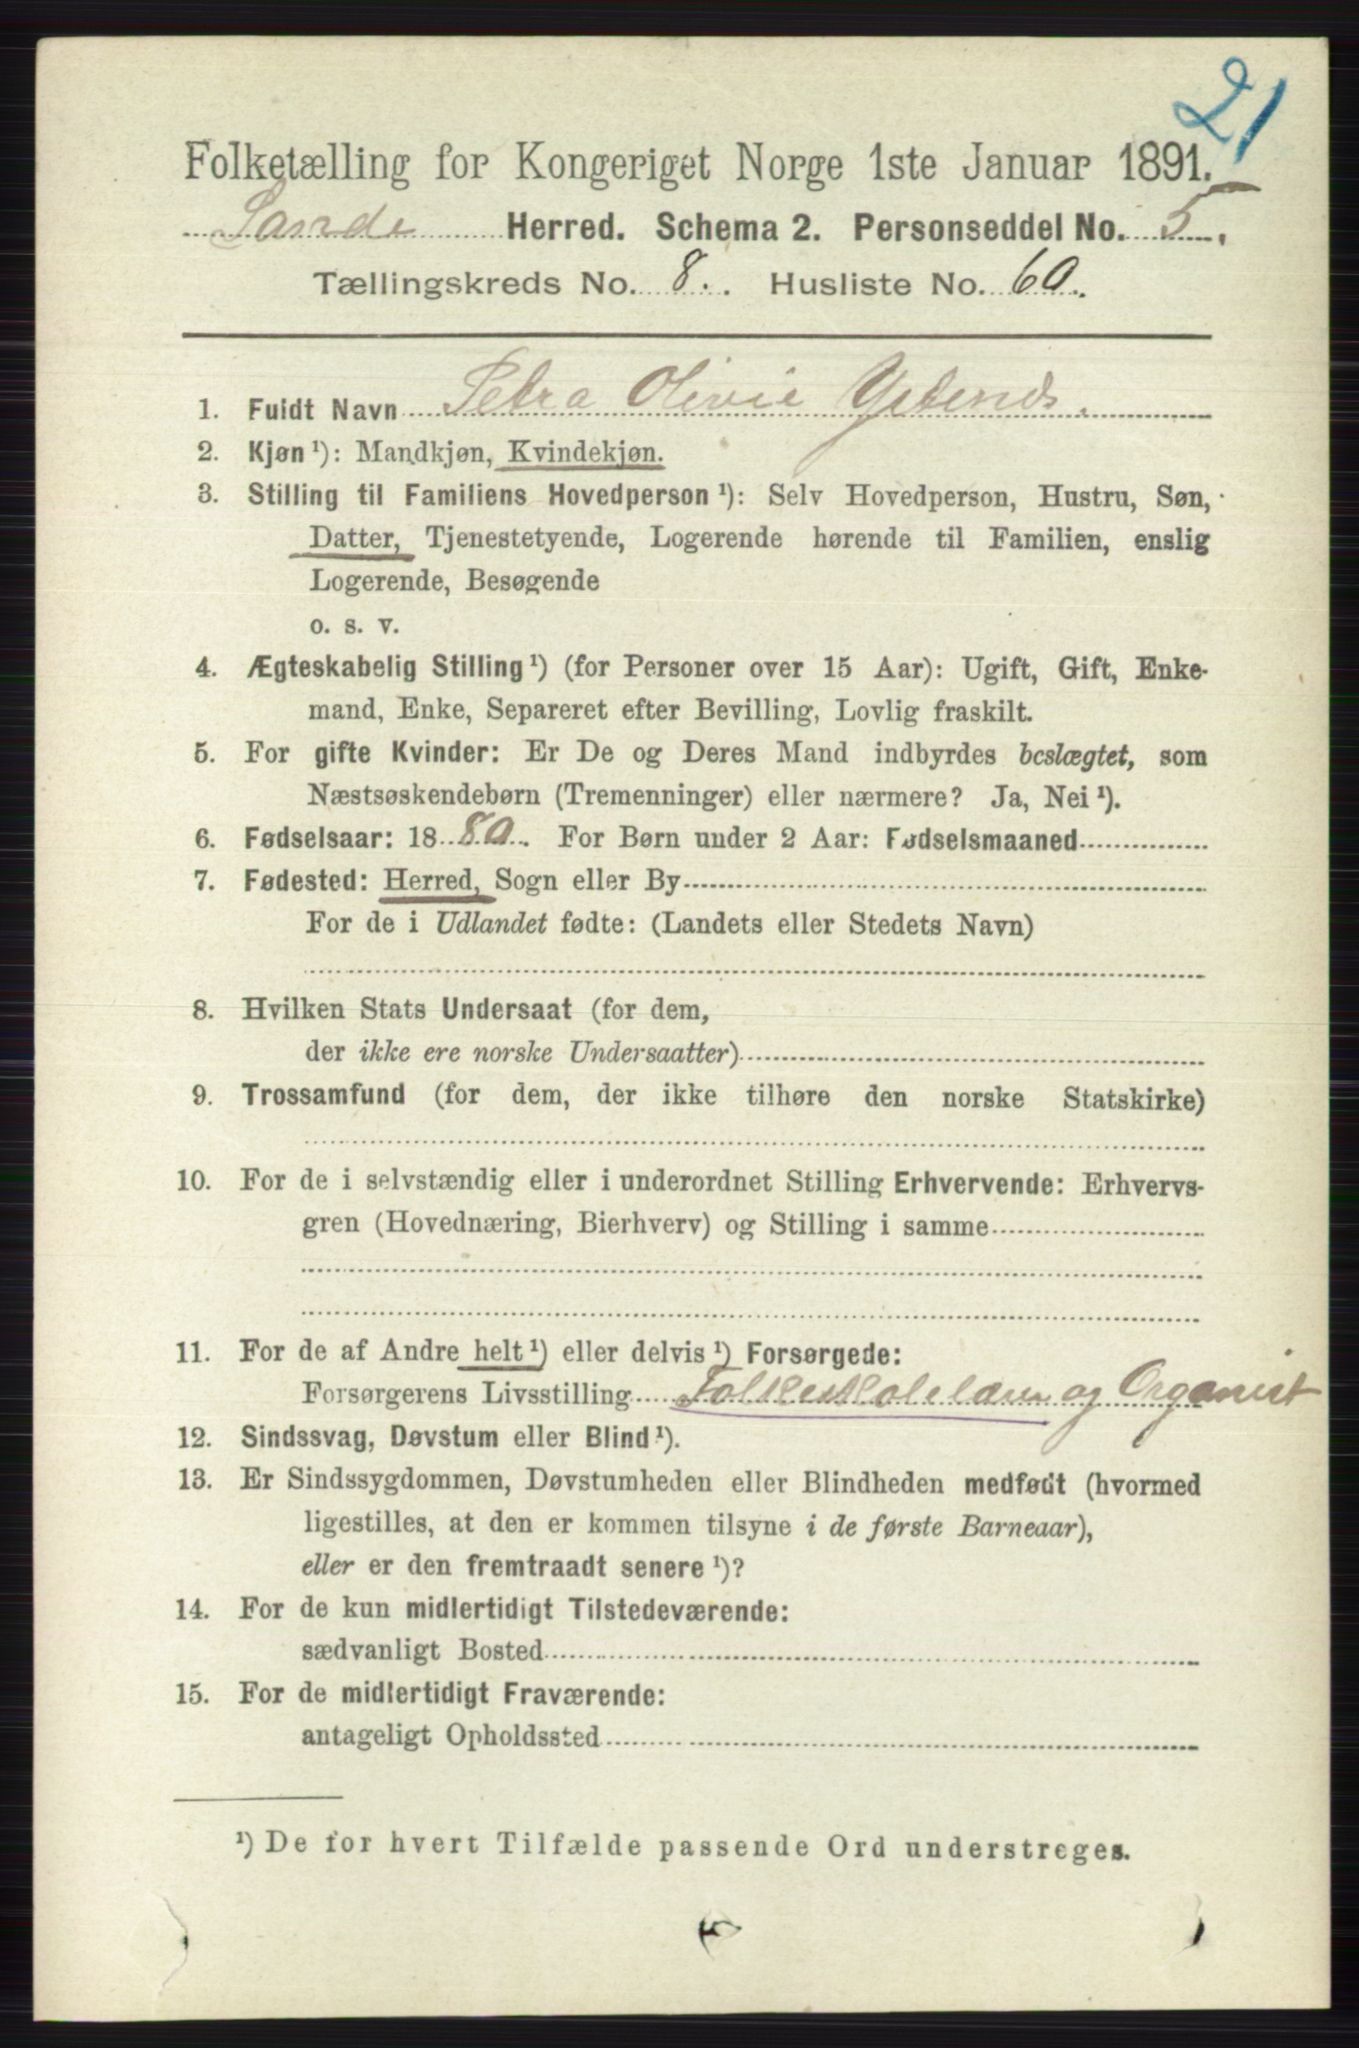 21
Folketælling for Kongeriget Norge 1ste Januar 1891.
Sande Herred. Schema 2. Personseddel No. 5.
Tællingskreds No. 8. Husliste No. 60.
1. Fuldt Navn Petra Olivie
2. Kjøn ¹): Mandkjøn, Kvindekjøn.
3. Stilling til Familiens Hovedperson ¹): Selv Hovedperson, Hustru, Søn,
Datter, Tjenestetyende, Logerende hørende til Familien, enslig
Logerende, Besøgende
o. s. v.
4. Ægteskabelig Stilling ¹) (for Personer over 15 Aar): Ugift, Gift, Enke-
mand, Enke, Separeret efter Bevilling, Lovlig fraskilt.
5. For gifte Kvinder: Er De og Deres Mand indbyrdes beslægtet, som
Næstsøskendebørn (Tremenninger) eller nærmere? Ja, Nei ¹).
6. Fødselsaar: 1880. For Børn under 2 Aar: Fødselsmaaned
7. Fødested: Herred, Sogn eller By
For de i Udlandet fødte: (Landets eller Stedets Navn)
8. Hvilken Stats Undersaat (for dem,
der ikke ere norske Undersaatter)
9. Trossamfund (for dem, der ikke tilhøre den norske Statskirke)
10. For de i selvstændig eller i underordnet Stilling Erhvervende: Erhvervs-
gren (Hovednæring, Bierhverv) og Stilling i samme
11. For de af Andre helt ¹) eller delvis ¹) Forsørgede:
Forsørgerens Livsstilling Folkeskolelærer og Organist
12. Sindssvag, Døvstum eller Blind ¹).
13. Er Sindssygdommen, Døvstumheden eller Blindheden medfødt (hvormed
ligestilles, at den er kommen tilsyne i de første Barneaar),
eller er den fremtraadt senere ¹)?
14. For de kun midlertidigt Tilstedeværende:
sædvanligt Bosted
15. For de midlertidigt Fraværende:
antageligt Opholdssted
¹) De for hvert Tilfælde passende Ord understreges.